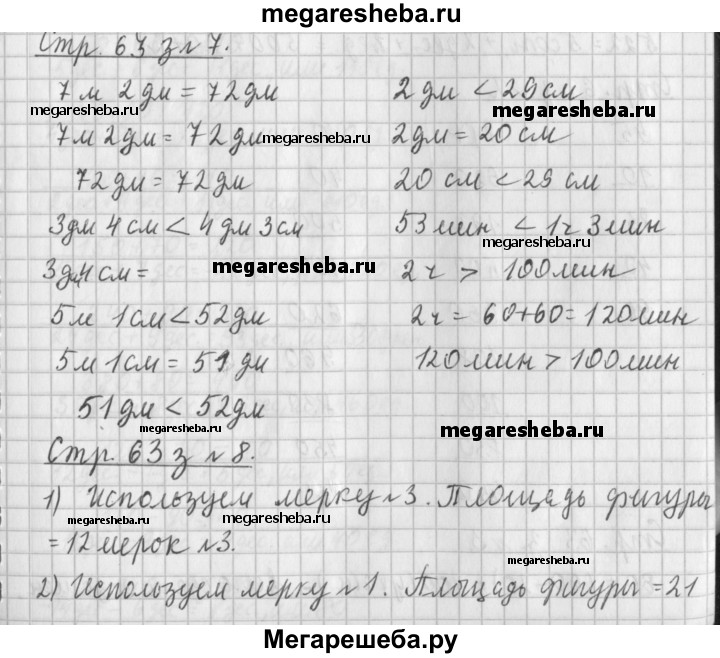 megaresheba.ru
Стр. 63 з №7.
7 м 2 дм = 72 дм
2 дм < 29 см
megaresheba.ru
megaresheba.ru
7 м 2 дм = 72 дм
megaresheba.ru
2 дм = 20 см
72 дм = 72 дм
20 см < 29 см
3 дм 4 см < 4 дм 3 см
53 мин < 1 ч 3 мин
megaresheba.ru
3 дм 4 см =
megaresheba.ru
2 ч > 100 мин
5 м 1 см < 52 дм
2 ч = 60 + 60 = 120 мин
5 м 1 см = 51 дм
120 мин > 100 мин
51 дм < 52 дм
megaresheba.ru
megaresheba.ru
Стр. 63 з №8.
1) Используем мерку №3. Площадь фигуры
megaresheba.ru
megaresheba.ru
= 12 мерок №3.
megaresheba.ru
2) Используем мерку №1. Площадь фигуры = 21
Мегарешеба.ру